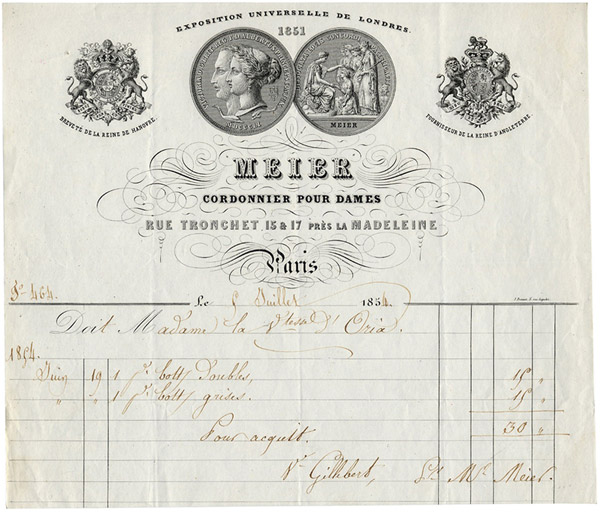 EXPOSITION UNIVERSELLE DE LONDRES.
1851
MEIER
BREVETÉ DE LA REINE DE HANOVRE.
FOURNISSEUR DE LA REINE D'ANGLETERRE.
MEIER
CORDONNIER POUR DAMES
RUE TRONCHET, 15 & 17 PRÈS LA MADELEINE
Paris
Fo 464.
Le Juillet 1854.
Doit Madame la Vtesse d'Oria.
1854.
Juin 19 1 pr. bott/ Doubles, 15 "
" " 1 pr. bott/ grises. 15 "
30 "
Pour acquit.
Vr Gillibert, Mr Meier.